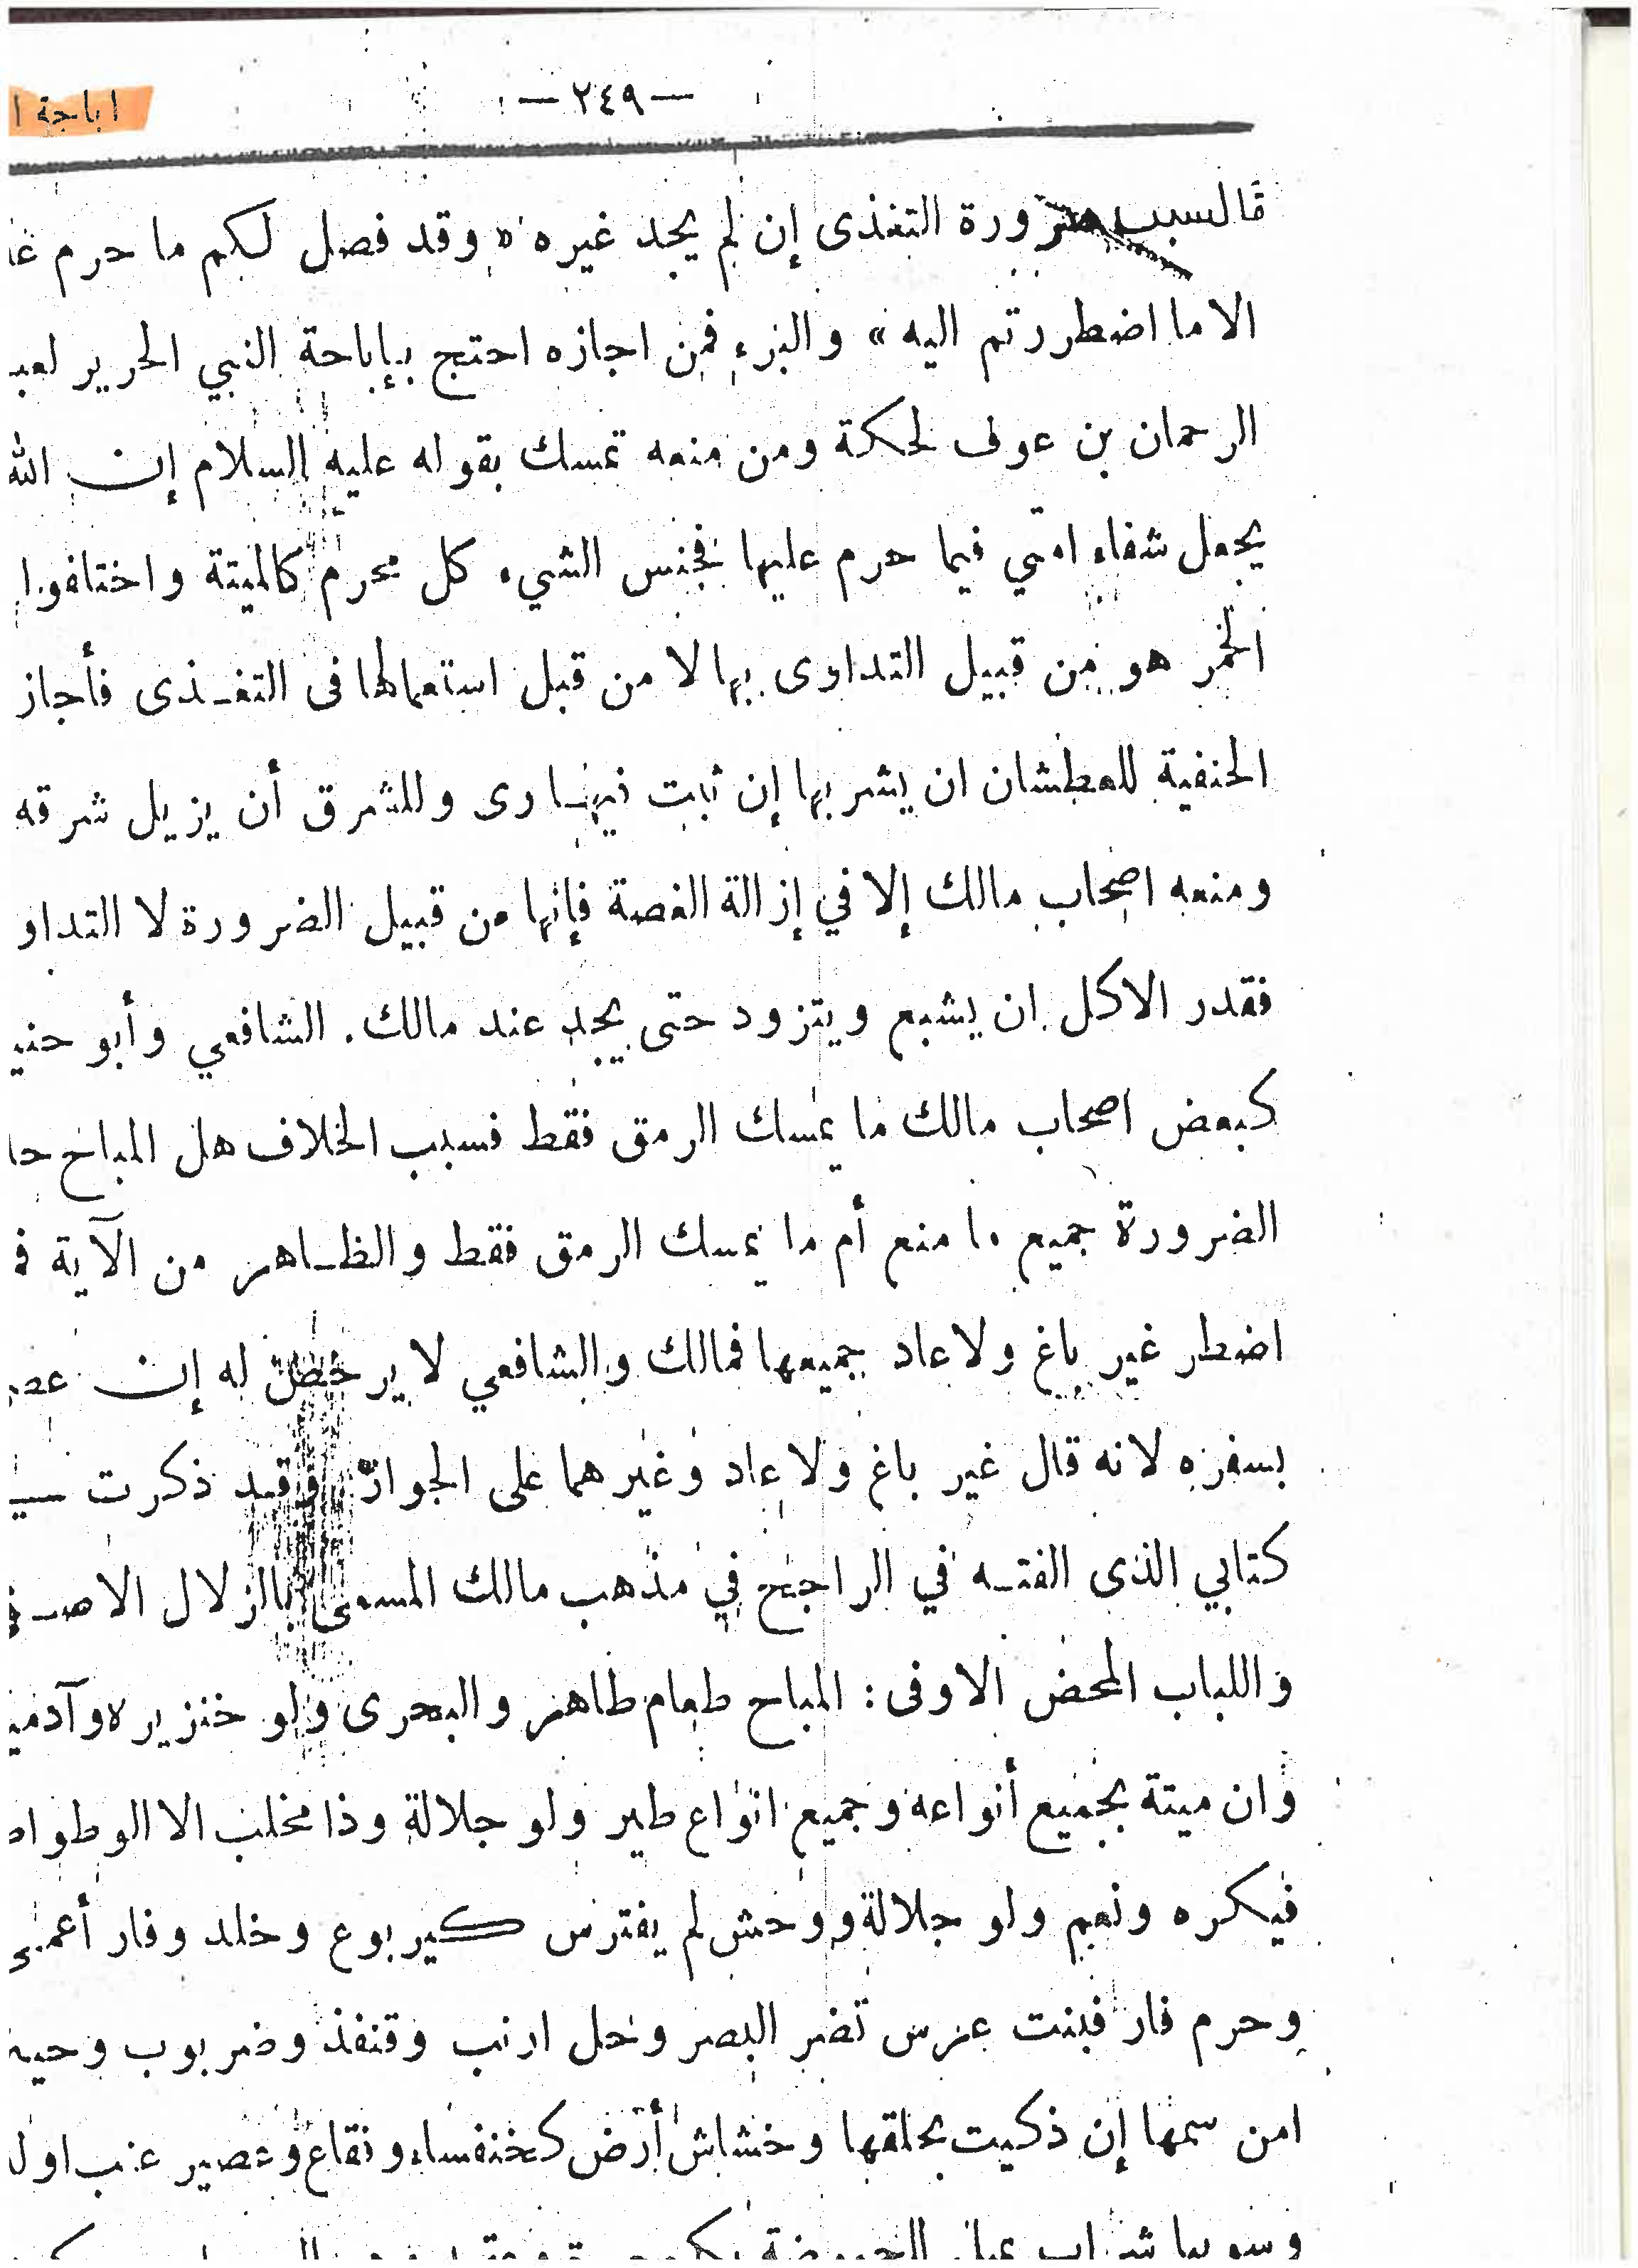 اباحة ا
— ٢٤٩ —
فالسبب ضرورة التغذى إن لم يجد غيره « وقد فصل لكم ما حرم
الا ما اضطررتم اليه » والبرء فمن اجازه احتج بإباحة النبي الحرير لعبد
الرحمان بن عوف لحكة ومن منعه تمسك بقوله عليه السلام إن الله
يجعل شفاء امتي فيما حرم عليها فجنس الشيء كل محرم كالميتة واختلفوا
الخمر هو من قبيل التداوى بها لا من قبل استعمالها فى التغـذى فأجاز
الحنفية للعطشان ان يشربها إن ثبت فيهـا رى وللشرق أن يزيل شرقه
ومنعه اصحاب مالك إلا في إزالة الغصة فإنها من قبيل الضرورة لا التداو
فقدر الاكل ان يشبع ويتزود حتى يجد عند مالك. الشافعي وأبو حني
كبعض اصحاب مالك ما يمسك الرمق فقط فسبب الخلاف هل المباح حا
الضرورة جميع ما منع أم ما يمسك الرمق فقط والظـاهر من الآية فـ
اضطر غير باغ ولا عاد جميعها فمالك والشافعي لا يرخص له إن عصـ
بسفره لانه قال غير باغ ولا عاد وغيرهما على الجواز وقد ذكرت
كتابي الذى الفتـه في الراجح في مذهب مالك المسمى بالزلال الاصـفى
واللباب المحض الاوفى : المباح طعام طاهر والبحرى ولو خنزيره وآدميـ
وان ميتة بجميع أنواعه وجميع انواع طير ولو جلالة وذا مخلب الا الوطواط
فيكره ونعم ولو جلالة ووحش لم يفترس كيربوع وخلد وفار أعمى
وحرم فار فبنت عرس تضر البصر وحل ارنب وقنفذ وضربوب وحيـة
امن سمها إن ذكيت بحلقها وخشاش أرض كخنفساء ونقاع وعصير عنب اول
وسوبيا شراب يميل